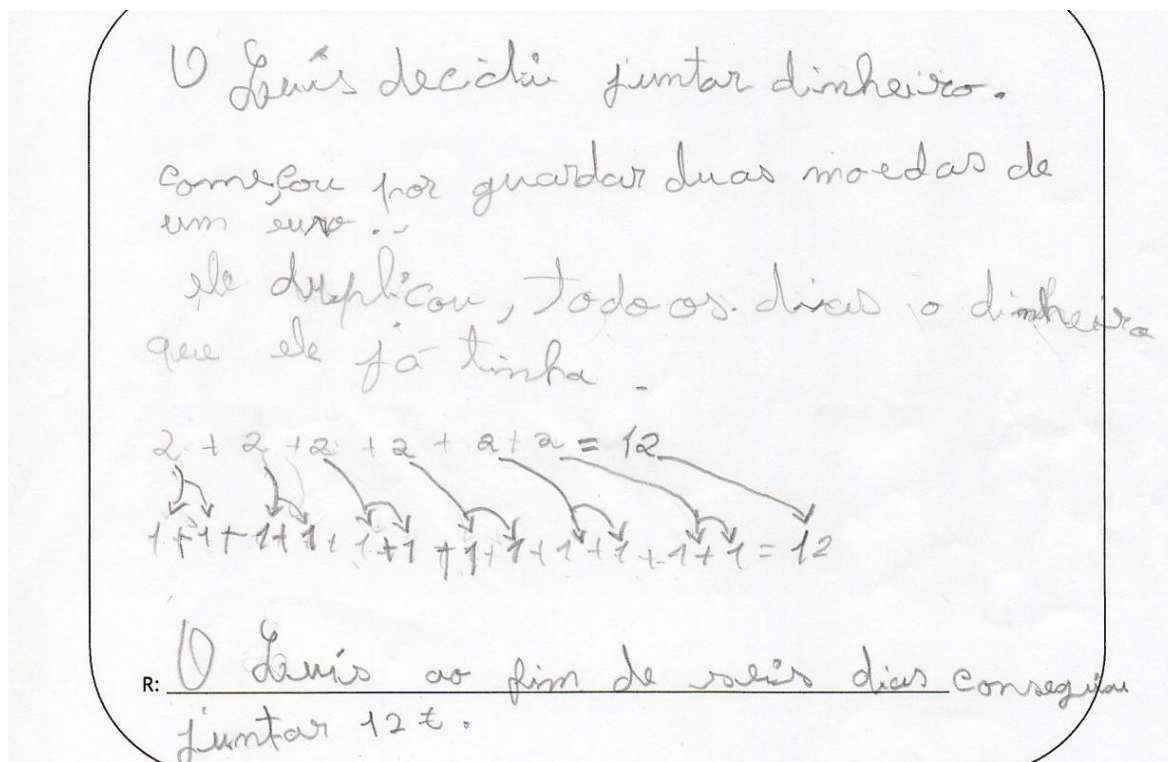 O Luís decidiu juntar dinheiro.
começou por guardar duas moedas de
um euro..
ele duplicou, todo os dias o dinheiro
que ele já tinha.
2 + 2 + 2 + 2 + 2 + 2 = 12
1+1+1+1+1+1+1+1+1+1+1+1=12
R: O Luís ao fim de seis dias conseguiu
juntar 12 €.